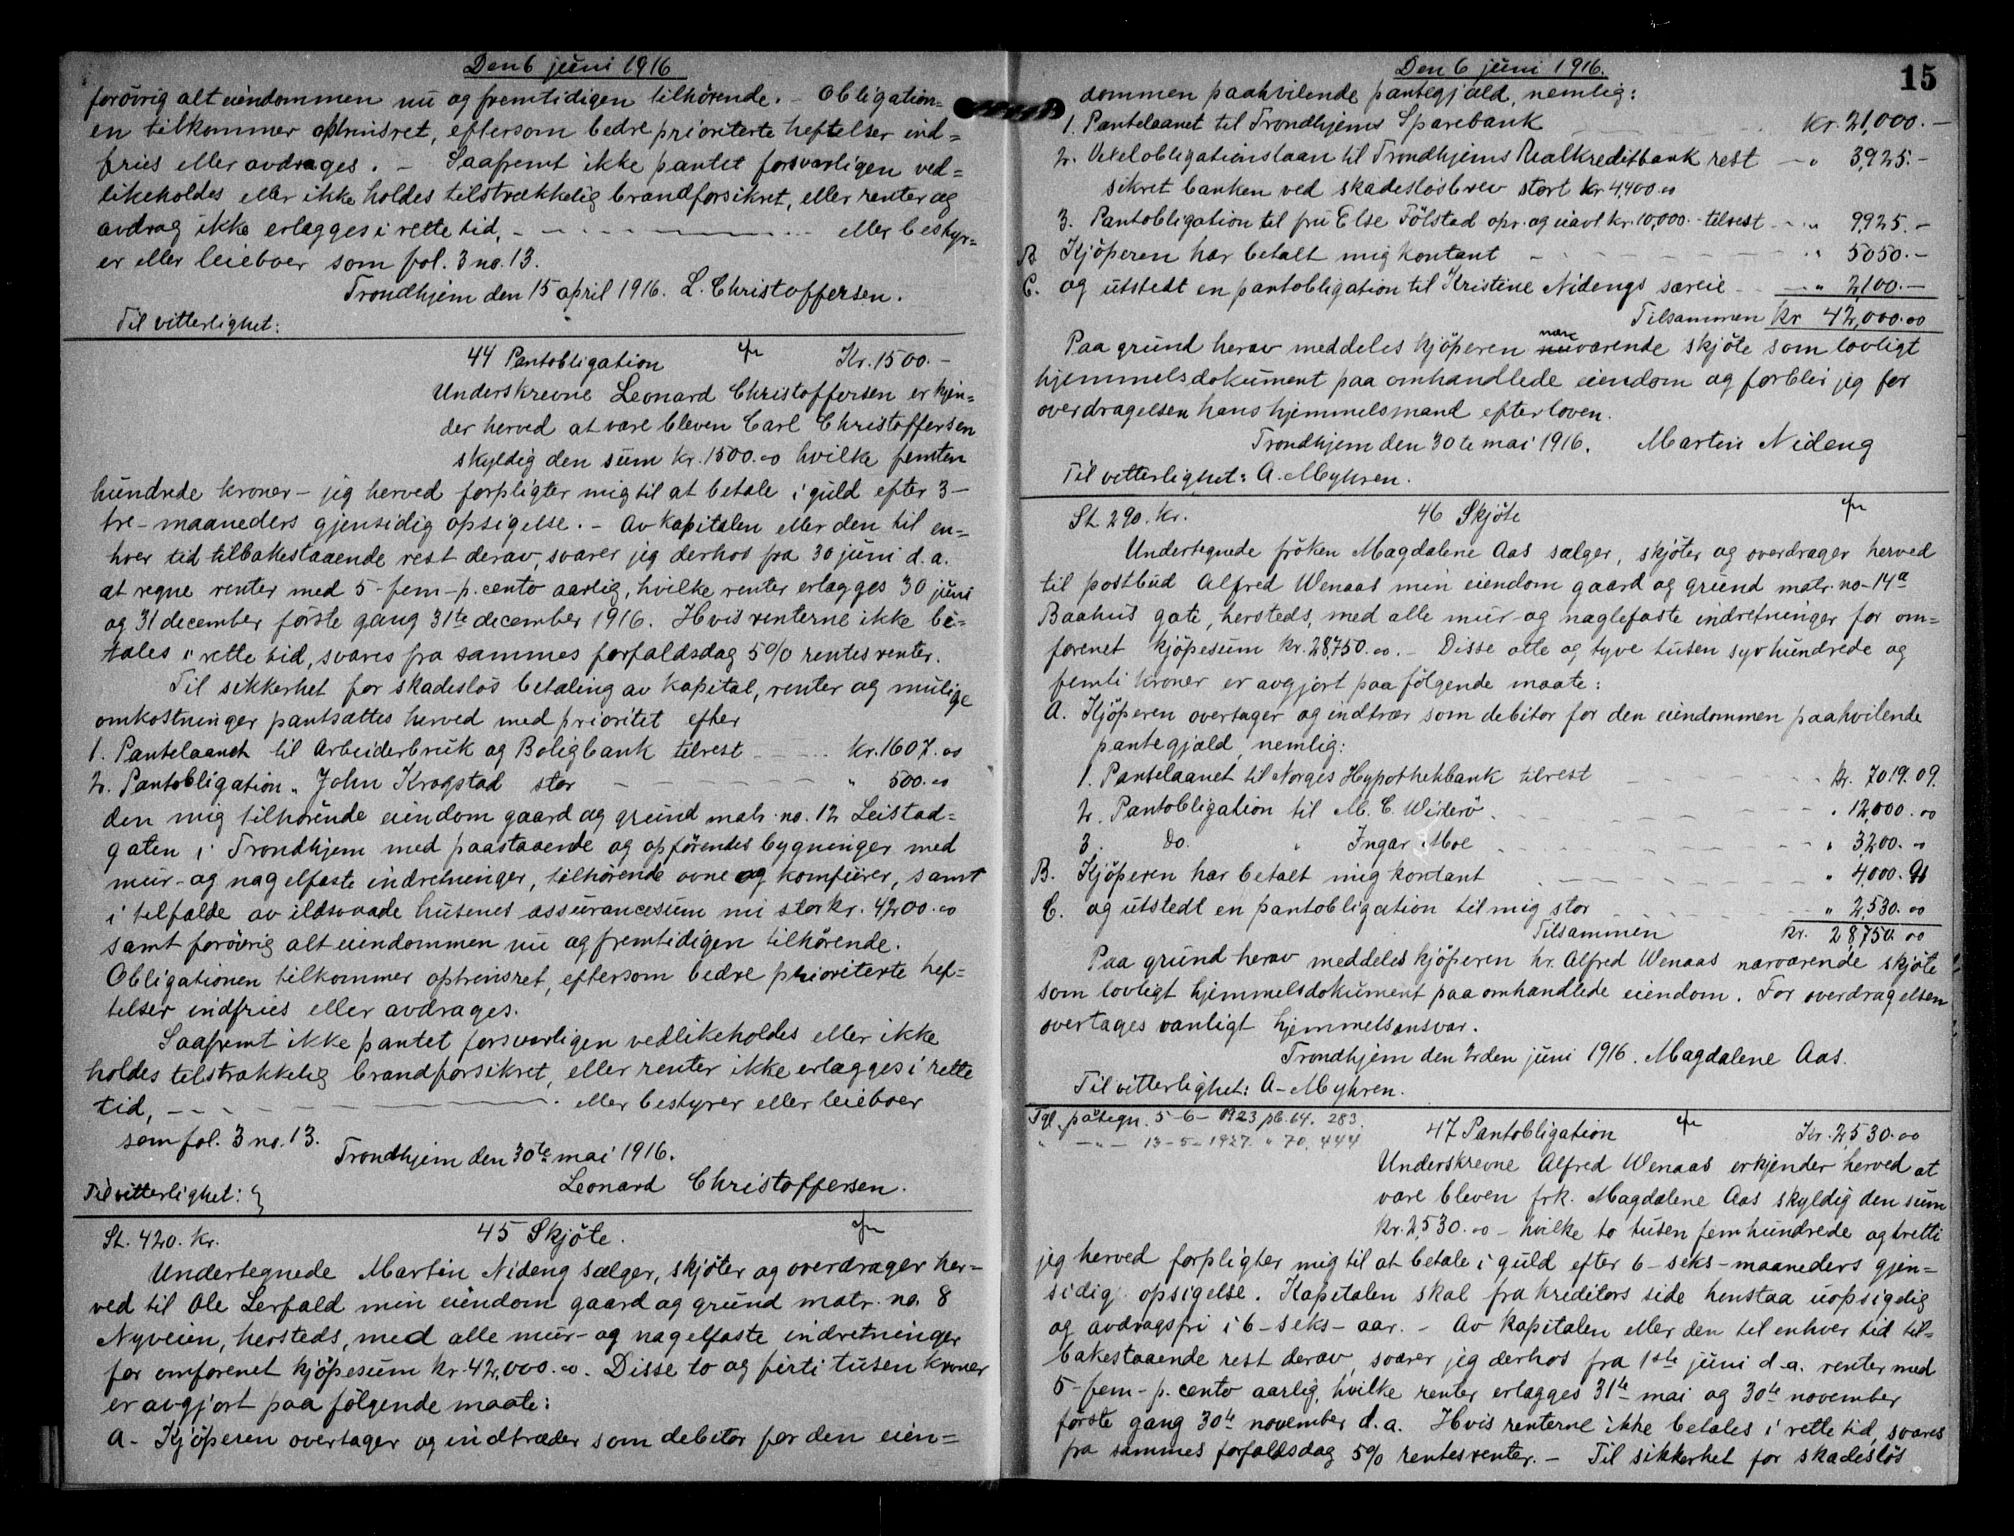 Den 6 juni 1916
forøvrig alt eiendommen nu og fremtidigen tilhørende. – Obligation=
en tilkommer optrinsret, eftersom bedre prioriterte heftelser ind=
fries eller avdrages. – Saafremt ikke pantet forsvarligen ved=
likeholdes eller ikke holdes tilstrækkelig brandforsikret, eller renter og
avdrag ikke erlægges i rette tid, – – – eller bestyr=
er eller leieboer som fol. 3 no. 13.
Trondhjem den 15 april 1916. L. Christoffersen.
Til vitterlighet:
44 Pantobligation Kr. 1500.–
Underskrevne Leonard Christoffersen erkjen=
der herved at være bleven Carl Christoffersen
skyldig den sum kr. 1500.00 hvilke femten
hundrede kroner – jeg herved forpligter mig til at betale i guld efter 3–
tre – maaneders gjensidig opsigelse. – Av kapitalen eller den til en=
hver tid tilbakestaaende rest derav, svarer jeg derhos fra 30 juni d.a.
at regne renter med 5 – fem – p. cento aarlig, hvilke renter erlægges 30 juni
og 31 december første gang 31te december 1916. Hvis renterne ikke be=
tales i rette tid, svares fra sammes forfaldsdag 5% rentesrenter.
Til sikkerhet for skadesløs betaling av kapital, renter og mulige
omkostninger pantsættes herved med prioritet efter
1. Pantelaanet til Arbeiderbruk og Boligbank tilrest – – kr. 1607.00
2. Pantobligation " John Krogstad stor – – – " 500.00
den mig tilhørende eiendom gaard og grund matr. no. 12 Leistad=
gaten i Trondhjem med paastaaende og opførendes bygninger med
mur- og nagelfaste indretninger, tilhørende ovne og komfürer, samt
i tilfælde av ildsvaade husenes assurancesum nu stor kr. 4200.00
samt forøvrig alt eiendommen nu og fremtidigen tilhørende.
Obligationen tilkommer optrinsret, eftersom bedre prioriterte hef=
telser indfries eller avdrages.
Saafremt ikke pantet forsvarligen vedlikeholdes eller ikke
holdes tilstrækkelig brandforsikret, eller renter ikke erlægges i rette
tid, – – – eller bestyrer eller leieboer
som fol. 3 no. 13.
Trondhjem den 30te mai 1916.
Leonard Christoffersen.
Til vitterlighet:
St. 420. kr. 45 Skjøte.
Undertegnede Martin Nideng sælger, skjøter og overdrager her=
ved til Ole Lerfald min eiendom gaard og grund matr. no. 8
Nyveien, hersteds, med alle mur- og nagelfaste indretninger
for omforenet kjøpesum kr. 42,000.00. Disse to og førti tusen kroner
er avgjort paa følgende maate:
A – Kjøperen overtager og indtræder som debitor for den eien=
Den 6 juni 1916.
15
dommen paahvilende pantegjæld, nemlig:
1. Pantelaanet til Trondhjems Sparebank – – kr. 21,000.–
2. Vexelobligationslaan til Trondhjems Realkreditbank rest – " 3,925.–
sikret banken ved skadesløsbrev stort kr 4,400.00
3. Pantobligation til fru Else Følstad opr. og uavt kr. 10,000.– tilrest – " 9,925.–
B Kjøperen har betalt mig kontant – – – " 5050.–
C. og utstedt en pantobligation til Kristine Nidengs særeie – – " 2,100.–
Tilsammen kr 42,000.00
Paa grund herav meddeles kjøperen nærværende skjøte som lovligt
hjemmelsdokument paa omhandlede eiendom og forblir jeg for
overdragelsen hans hjemmelsmand efter loven.
Trondhjem den 30te mai 1916. Martin Nideng
Til vitterlighet: A. Myhren.
St. 290. kr. 46 Skjøte
Undertegnede frøken Magdalene Aas sælger, skjøter og overdrager herved
til postbud Alfred Wenaas min eiendom gaard og grund matr. no – 14a
Baahus gate, hersteds, med alle mur- og naglefaste indretninger for om=
forenet kjøpesum kr. 28,750.00. – Disse otte og tyve tusen syvhundrede og
femti kroner er avgjort paa følgende maate:
A. Kjøperen overtager og indtrær som debitor for den eiendommen paahvilende
pantegjæld, nemlig:
1. Pantelaanet til Norges Hypothekbank tilrest – – kr. 7019.09.
2. Pantobligation til M. C. Widerø – – – " 12,000.00
3. Do. " Ingar Moe – – – " 3200.00
B. Kjøperen har betalt mig kontant – – – " 4,000.91
C. og utstedt en pantobligation til mig stor – – – " 2,530.00
Tilsammen kr. 28,750.00
Paa grund herav meddeles kjøperen hr. Alfred Wenaas nærværende skjøte
som lovligt hjemmelsdokument paa omhandlede eiendom. For overdragelsen
overtages vanligt hjemmelsansvar.
Trondhjem den 2den juni 1916. Magdalene Aas.
Til vitterlighet: A – Myhren.
Tgl. påtegn. 5–6–1923 pb. 64. 283.
" –"– 13–5–1927. " 70, 444
47 Pantobligation Kr. 2,530.00
Underskrevne Alfred Wenaas erkjender herved at
være bleven frk. Magdalene Aas skyldig den sum
kr. 2,530.00 – hvilke to tusen femhundrede og tretti
jeg herved forpligter mig til at betale i guld efter 6 – seks – maaneders gjen=
sidig opsigelse. Kapitalen skal fra kreditors side henstaa uopsigelig
og avdragsfri i 6 – seks – aar. – Av kapitalen eller den til enhver tid til=
bakestaaende rest derav, svarer jeg derhos fra 1ste juni d.a. renter med
5 – fem – p. cento aarlig, hvilke renter erlægges 31te mai og 30te november
første gang 30te november d.a. Hvis renterne ikke betales i rette tid, svares
fra sammes forfaldsdag 5% rentesrenter. – Til sikkerhet for skadesløs